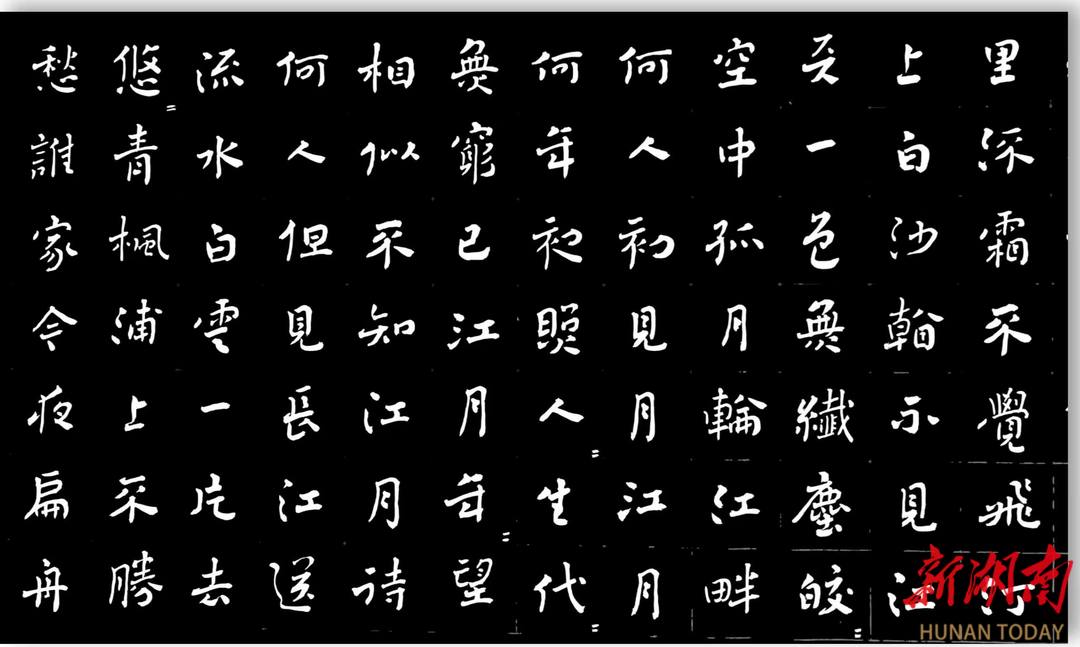 里流霜不覺飛汀
上白沙看不見江
天一色無纖塵皎〻
空中孤月輪江畔
何人初見月江月
何年初照人〻生代〻
無窮已江月年〻望
相似不知江月待
何人但見長江送
流水白雲一片去
悠〻青楓浦上不勝
愁誰家今夜扁舟
新湖南
HUNAN TODAY